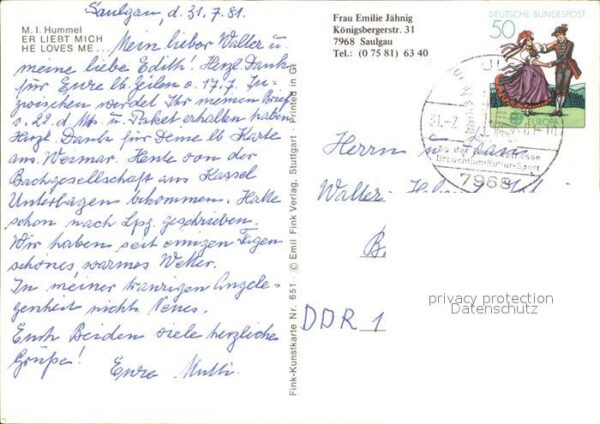 Saulgau, d. 31.7.81.
M. I. Hummel
ER LIEBT MICH
HE LOVES ME...
Mein lieber Walter u.
meine liebe Edith! Herzl. Dank
für Eure lb. Zeilen v. 17.7. In-
zwischen werdet Ihr meinen Brief
v. 22. d. Mts. u. Paket erhalten haben.
Herzl. Dank für Deine lb Karte
aus Weimar. Heute von der
Bachgesellschaft aus Kassel
Unterlagen bekommen. Hatte
schon nach Lpzg. geschrieben.
Wir haben seit einigen Tagen
schönes, warmes Wetter.
In meiner traurigen Angele-
genheit nichts Neues.
Euch Beiden viele herzliche
Grüße!
Eure Mutti.
Fink-Kunstkarte Nr. 651 · © Emil Fink Verlag, Stuttgart · Printed in G
Frau Emilie Jähnig
Königsbergerstr. 31
7968 Saulgau
Tel.: (0 75 81) 63 40
DEUTSCHE BUNDESPOST
50
EUROPA
31.-7.
der
strasse
7968
Herrn
Walter
B.
DDR 1
privacy protection
Datenschutz